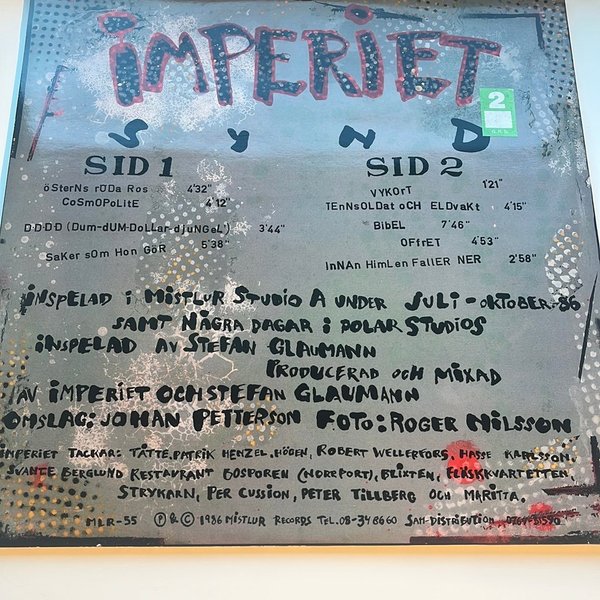 iMPERIET
2
SYND
SID 1
öSterNs rÖDa Ros 4'32"
CoSmOPoLitE 4'12"
D·D·D·D (Dum-dUM-DoLLar djuNGeL) 3'44"
SaKer sOm Hon GöR 5'38"
SID 2
VYKOrT 1'21"
TEnnsOLDat oCH ELDvAkt 4'15"
BibEL 7'46"
OFfrET 4'53"
InNAn HimLen FallER NER 2'58"
iNSPELAD i MiSTLUR STUDiO A UNDER JULi-OKTOBER-86
SAMT NÅGRA DAGAR i POLAR STUDiOS
iNSPELAD AV STEFAN GLAUMANN
PRODUCERAD OCH MiXAD
AV iMPERiET OCH STEFAN GLAUMANN
OMSLAG: JOHAN PETTERSON FOTO: ROGER NiLSSON
iMPERIET TACKAR: TÅTTE, PATRIK HENZEL, HÖGEN, ROBERT WELLERFORS, HASSE KARLSSON,
SVANTE BERGLUND RESTAURANT BOSPOREN (NORRPORT), BLIXTEN, FLKSKKVARTETTEN,
STRYKARN, PER CUSSION, PETER TILLBERG OCH MARITTA.
MLR-55 Ⓟ & © 1986 MISTLUR RECORDS TEL. 08-34 86 60 SAM-DISTRIBUTION